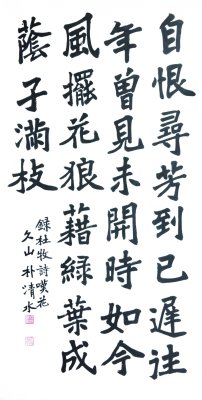 自恨尋芳到已遲往
年曾見未開時如今
風擺花狼藉緑葉成
蔭子滿枝
録杜牧詩嘆花
久山朴清水